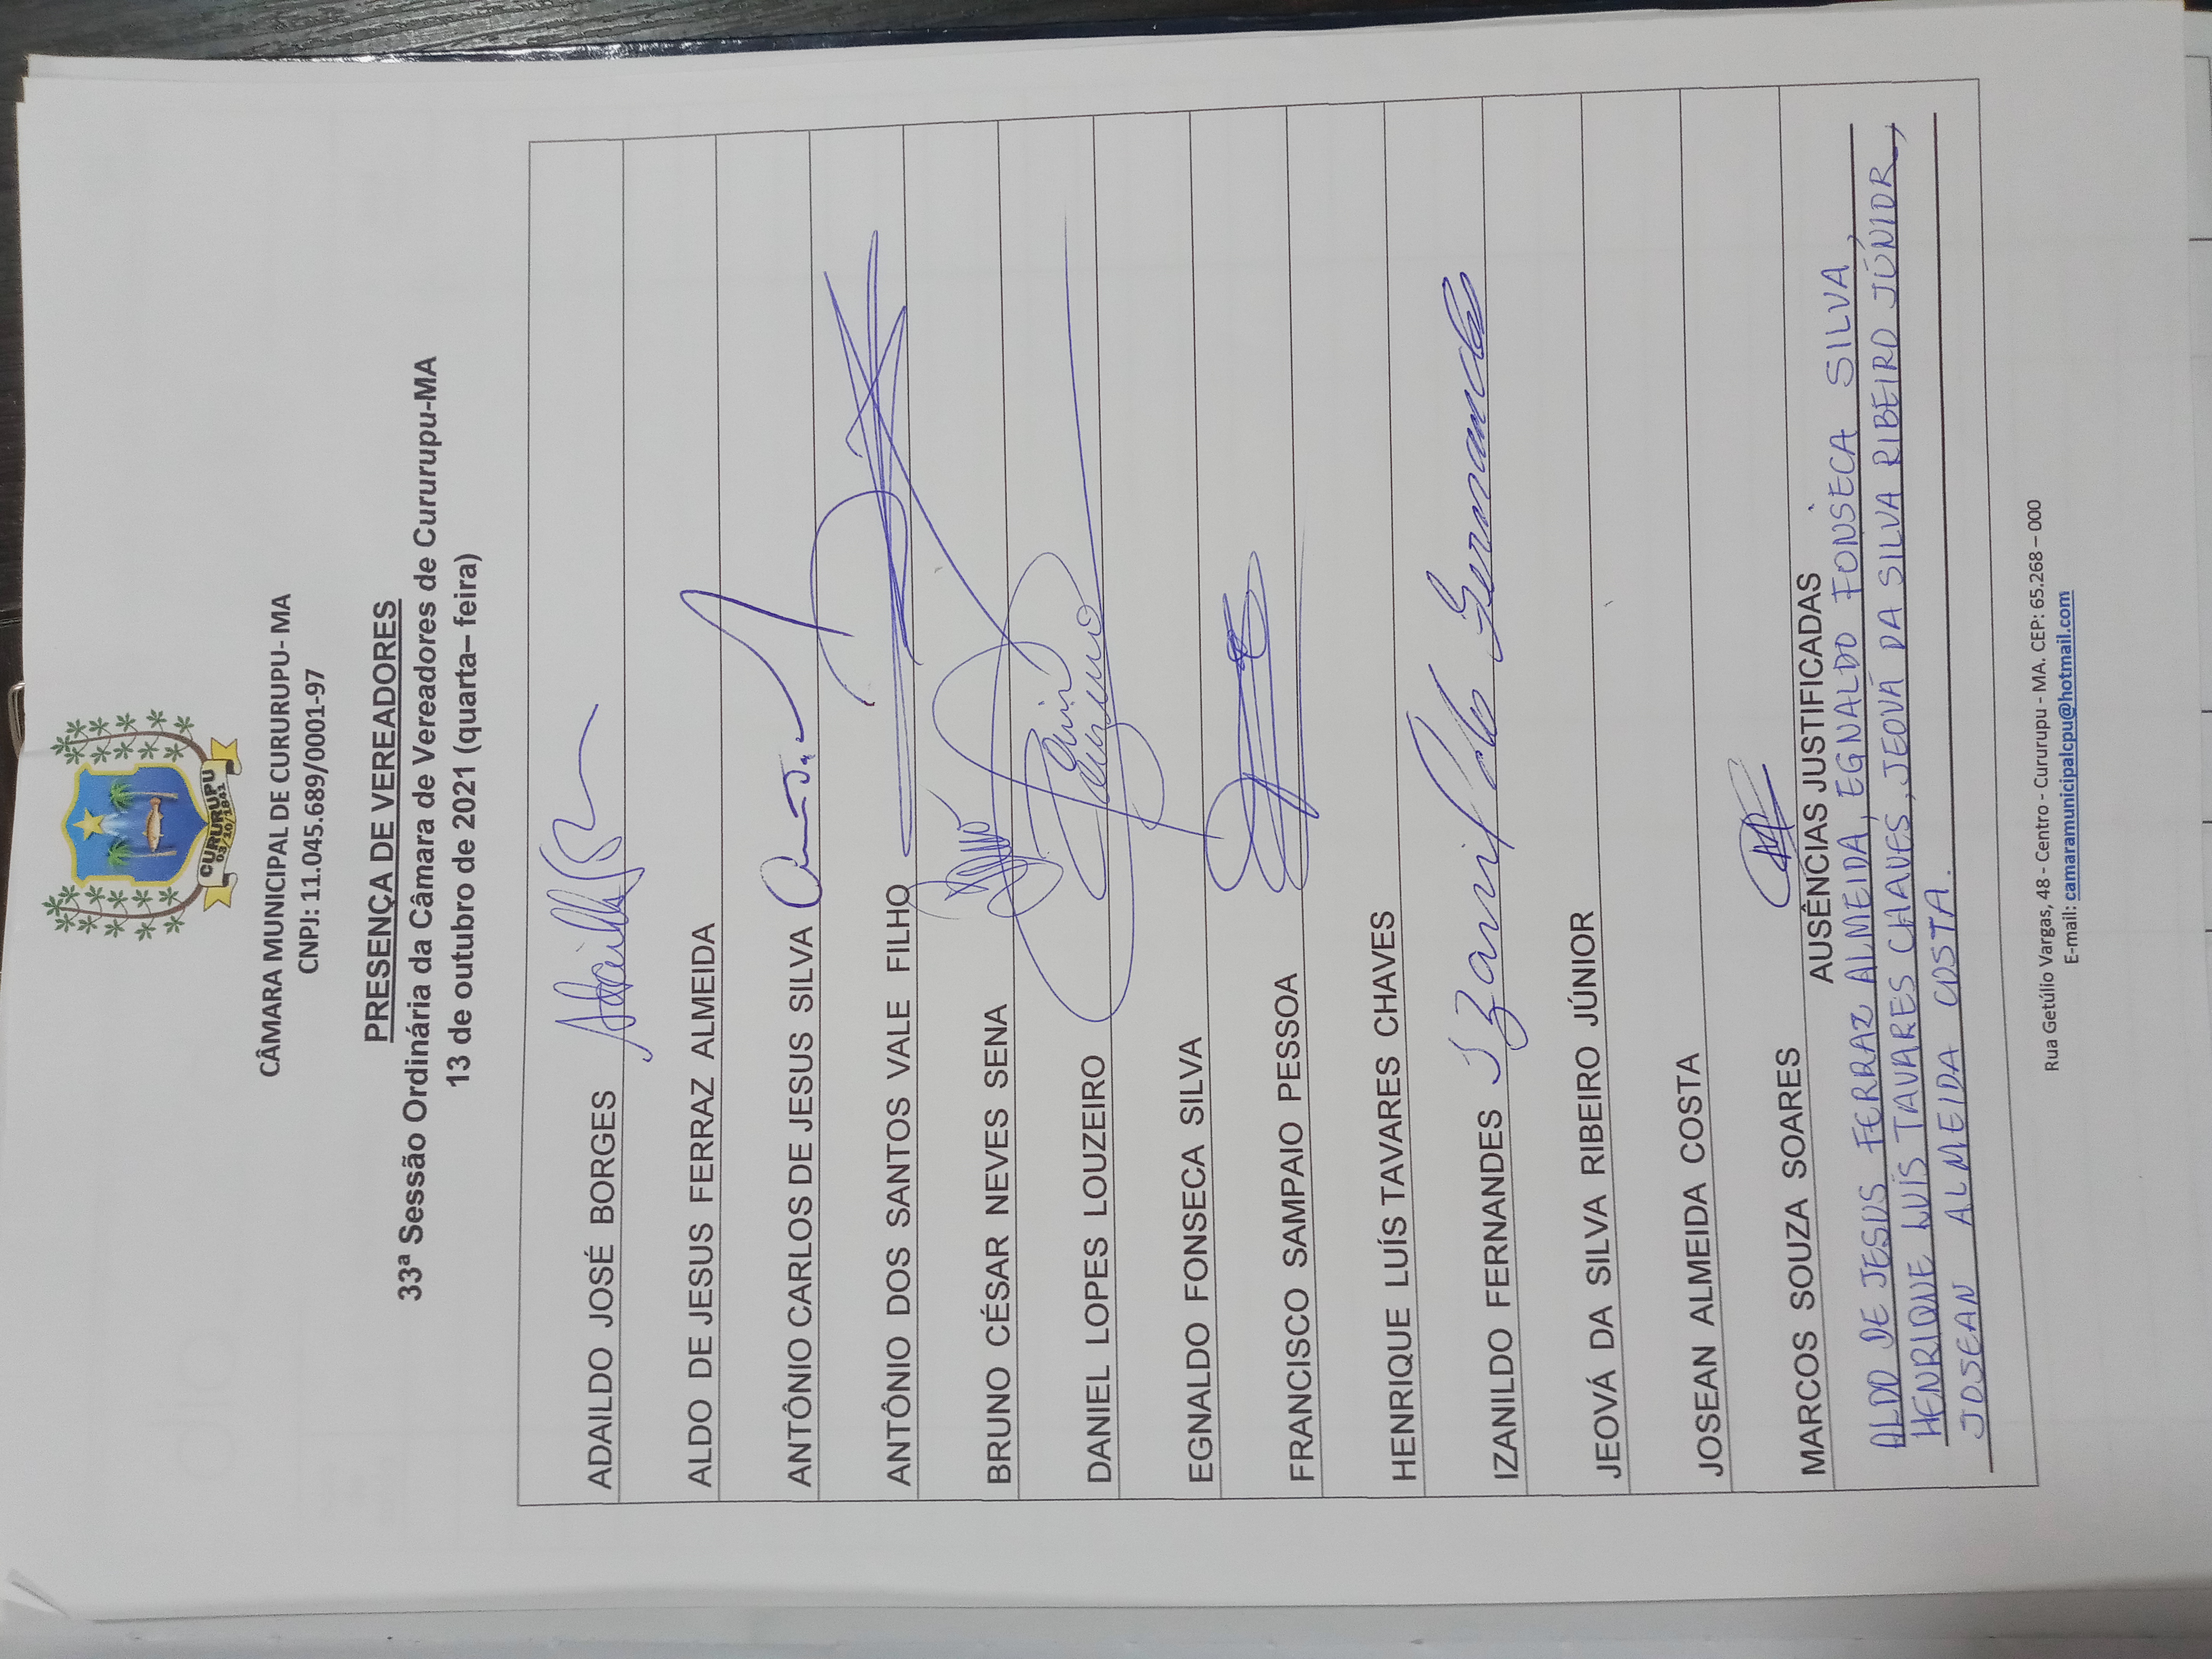 CURURUPU
03/10/1841
CÂMARA MUNICIPAL DE CURURUPU- MA
CNPJ: 11.045.689/0001-97
PRESENÇA DE VEREADORES
33ª Sessão Ordinária da Câmara de Vereadores de Cururupu-MA
13 de outubro de 2021 (quarta– feira)
ADAILDO JOSÉ BORGES
ALDO DE JESUS FERRAZ ALMEIDA
ANTÔNIO CARLOS DE JESUS SILVA
ANTÔNIO DOS SANTOS VALE FILHO
BRUNO CÉSAR NEVES SENA
DANIEL LOPES LOUZEIRO
EGNALDO FONSECA SILVA
FRANCISCO SAMPAIO PESSOA
HENRIQUE LUÍS TAVARES CHAVES
IZANILDO FERNANDES Izanildo Fernandes
JEOVÁ DA SILVA RIBEIRO JÚNIOR
JOSEAN ALMEIDA COSTA
MARCOS SOUZA SOARES
AUSÊNCIAS JUSTIFICADAS
ALDO DE JESUS FERRAZ ALMEIDA, EGNALDO FONSECA SILVA,
HENRIQUE LUÍS TAVARES CHAVES, JEOVÁ DA SILVA RIBEIRO JÚNIOR,
JOSEAN ALMEIDA COSTA.
Rua Getúlio Vargas, 48 - Centro - Cururupu - MA. CEP: 65.268 – 000
E-mail: camaramunicipalcpu@hotmail.com